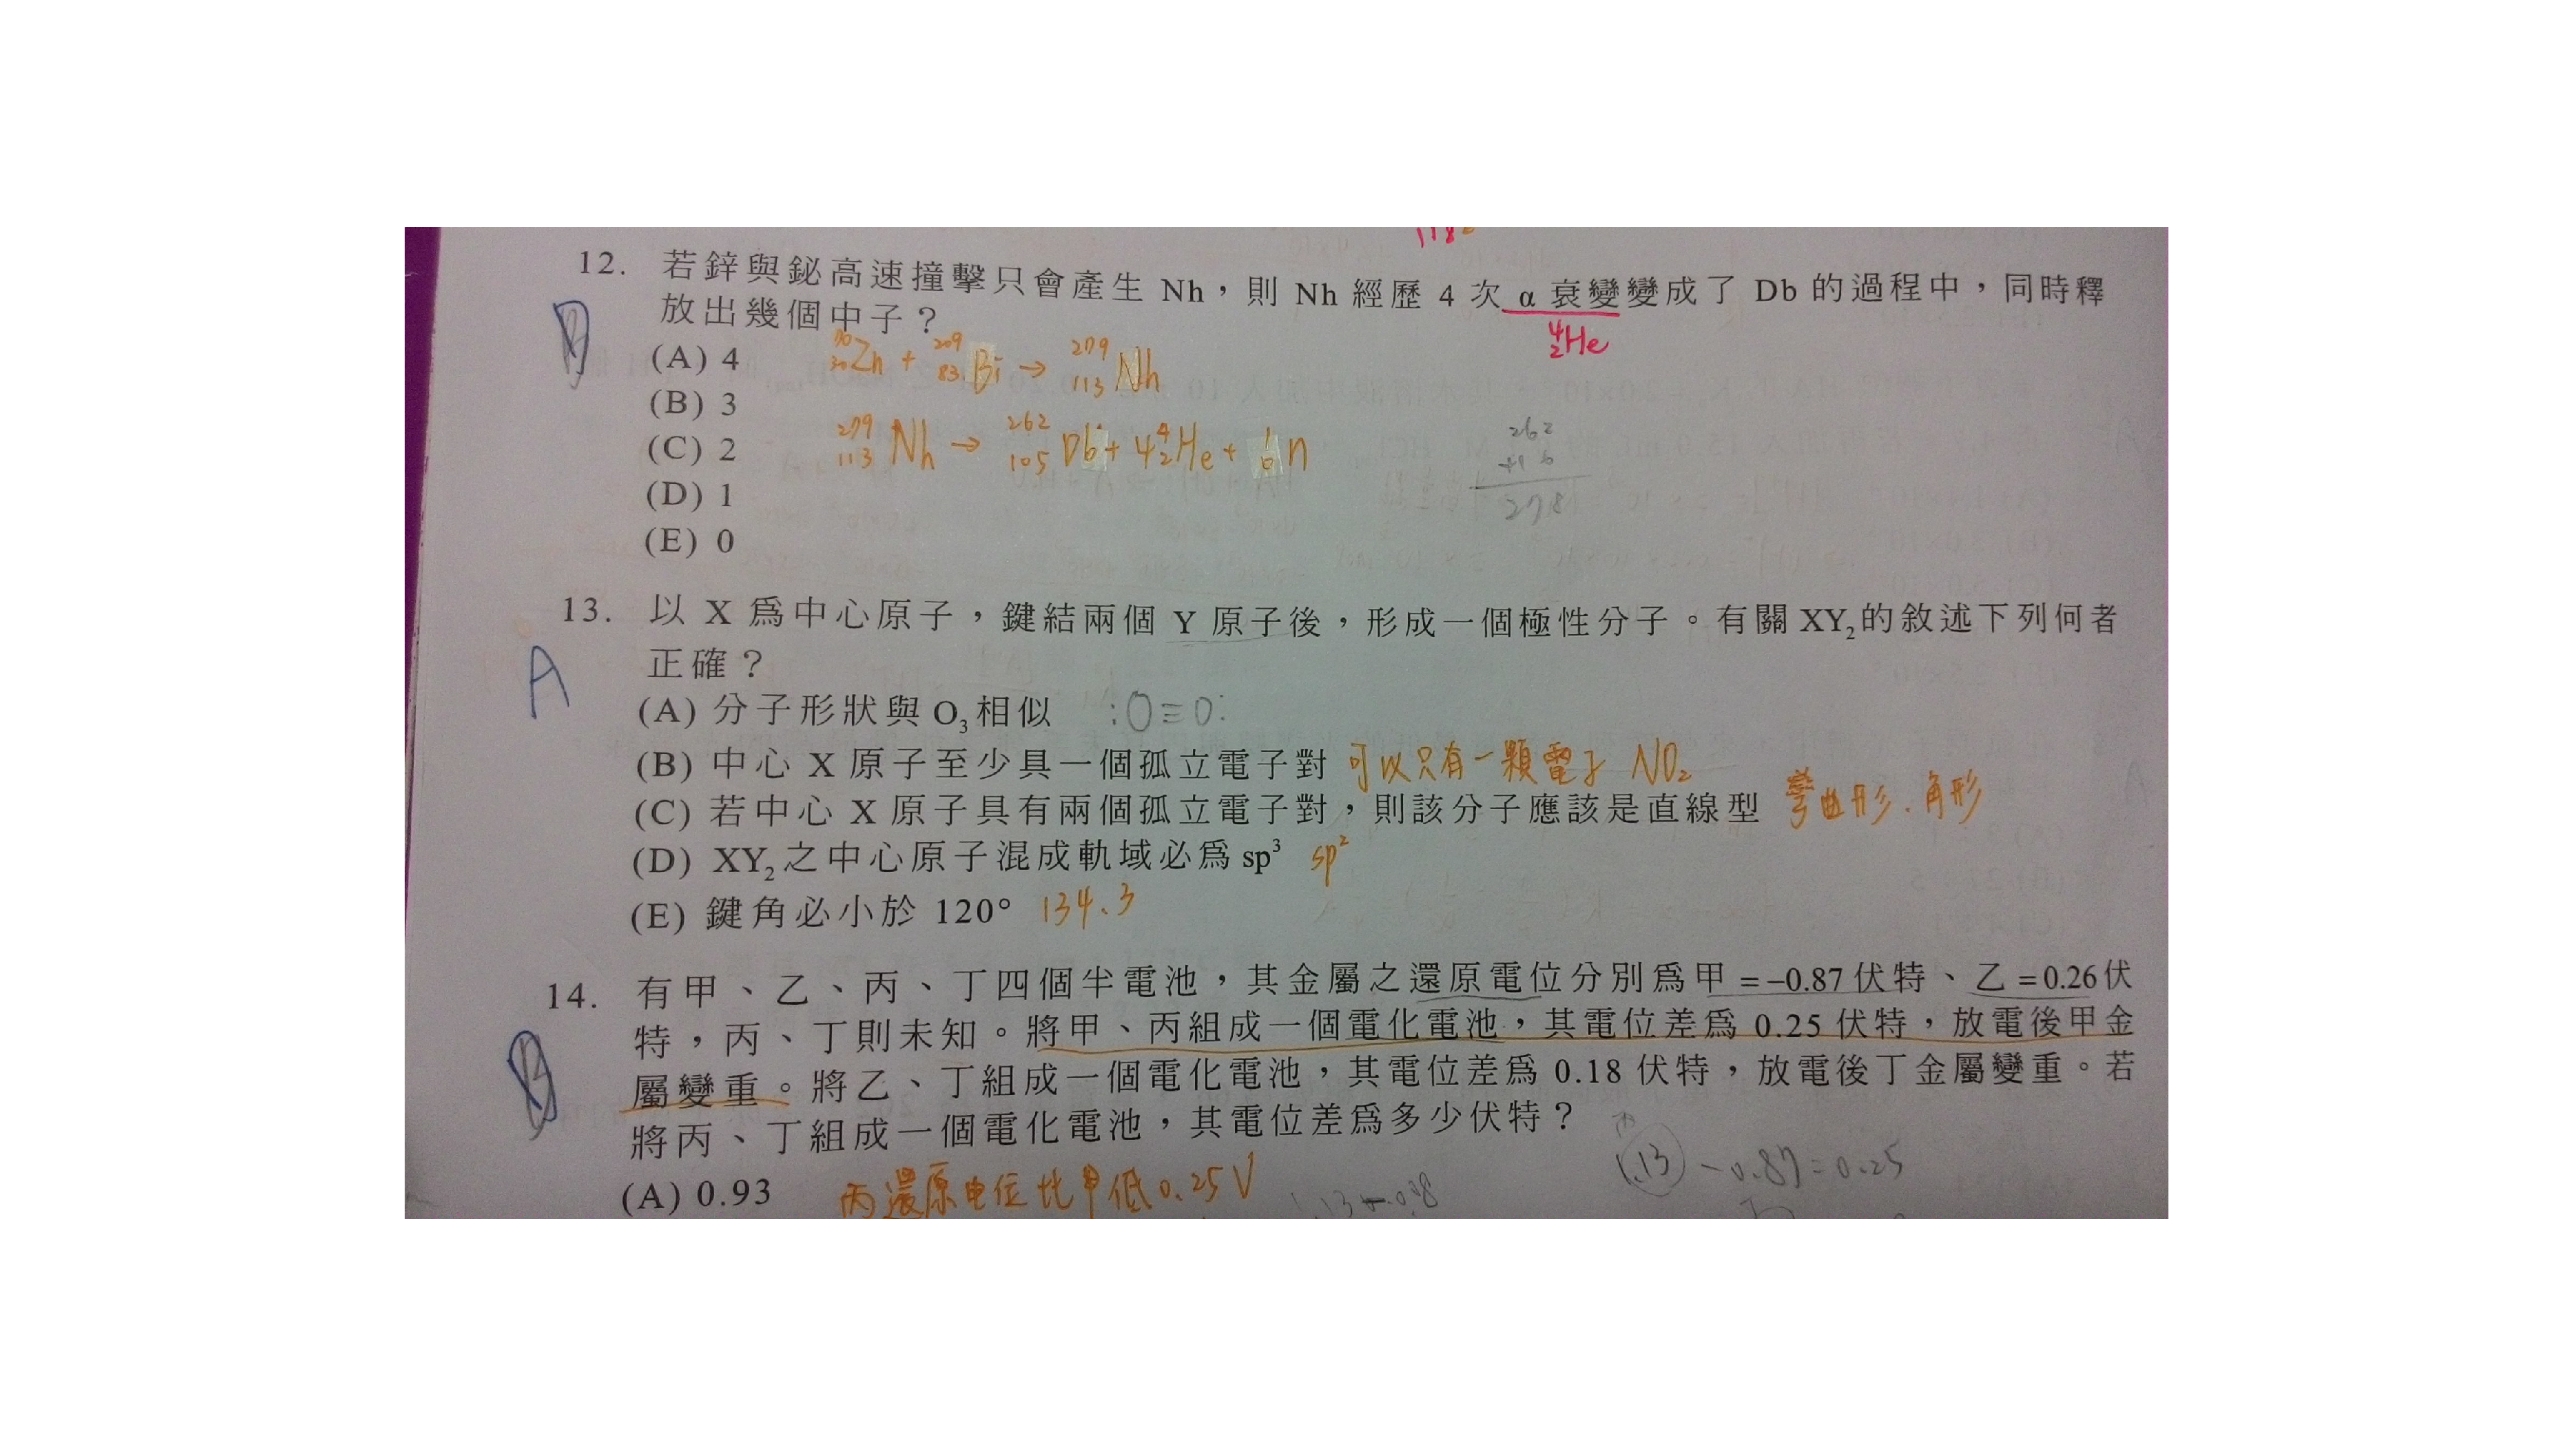 12. 若鋅與鉍高速撞擊只會產生 Nh，則 Nh 經歷 4 次 α 衰變變成了 Db 的過程中，同時釋
放出幾個中子？
⁴₂He
(A) 4 ⁷⁰₃₀Zn + ²⁰⁹₈₃Bi → ²⁷⁹₁₁₃Nh
(B) 3
(C) 2 ²⁷⁹₁₁₃Nh → ²⁶²₁₀₅Db + 4⁴₂He + ¹₀n
262
+16
278
(D) 1
(E) 0
13. 以 X 爲中心原子，鍵結兩個 Y 原子後，形成一個極性分子。有關 XY₂的敘述下列何者
A 正確？
(A) 分子形狀與 O₃相似 :O≡O:
(B) 中心 X 原子至少具一個孤立電子對 可以只有一顆電子 NO₂
(C) 若中心 X 原子具有兩個孤立電子對，則該分子應該是直線型 彎曲形、角形
(D) XY₂之中心原子混成軌域必爲 sp³ sp²
(E) 鍵角必小於 120° 134.3
14. 有甲、乙、丙、丁四個半電池，其金屬之還原電位分別爲甲 = –0.87 伏特、乙 = 0.26 伏
特，丙、丁則未知。將甲、丙組成一個電化電池，其電位差爲 0.25 伏特，放電後甲金
屬變重。將乙、丁組成一個電化電池，其電位差爲 0.18 伏特，放電後丁金屬變重。若
將丙、丁組成一個電化電池，其電位差爲多少伏特？
丙
1.13 - 0.87 = 0.25
(A) 0.93 丙還原电位比甲低0.25V